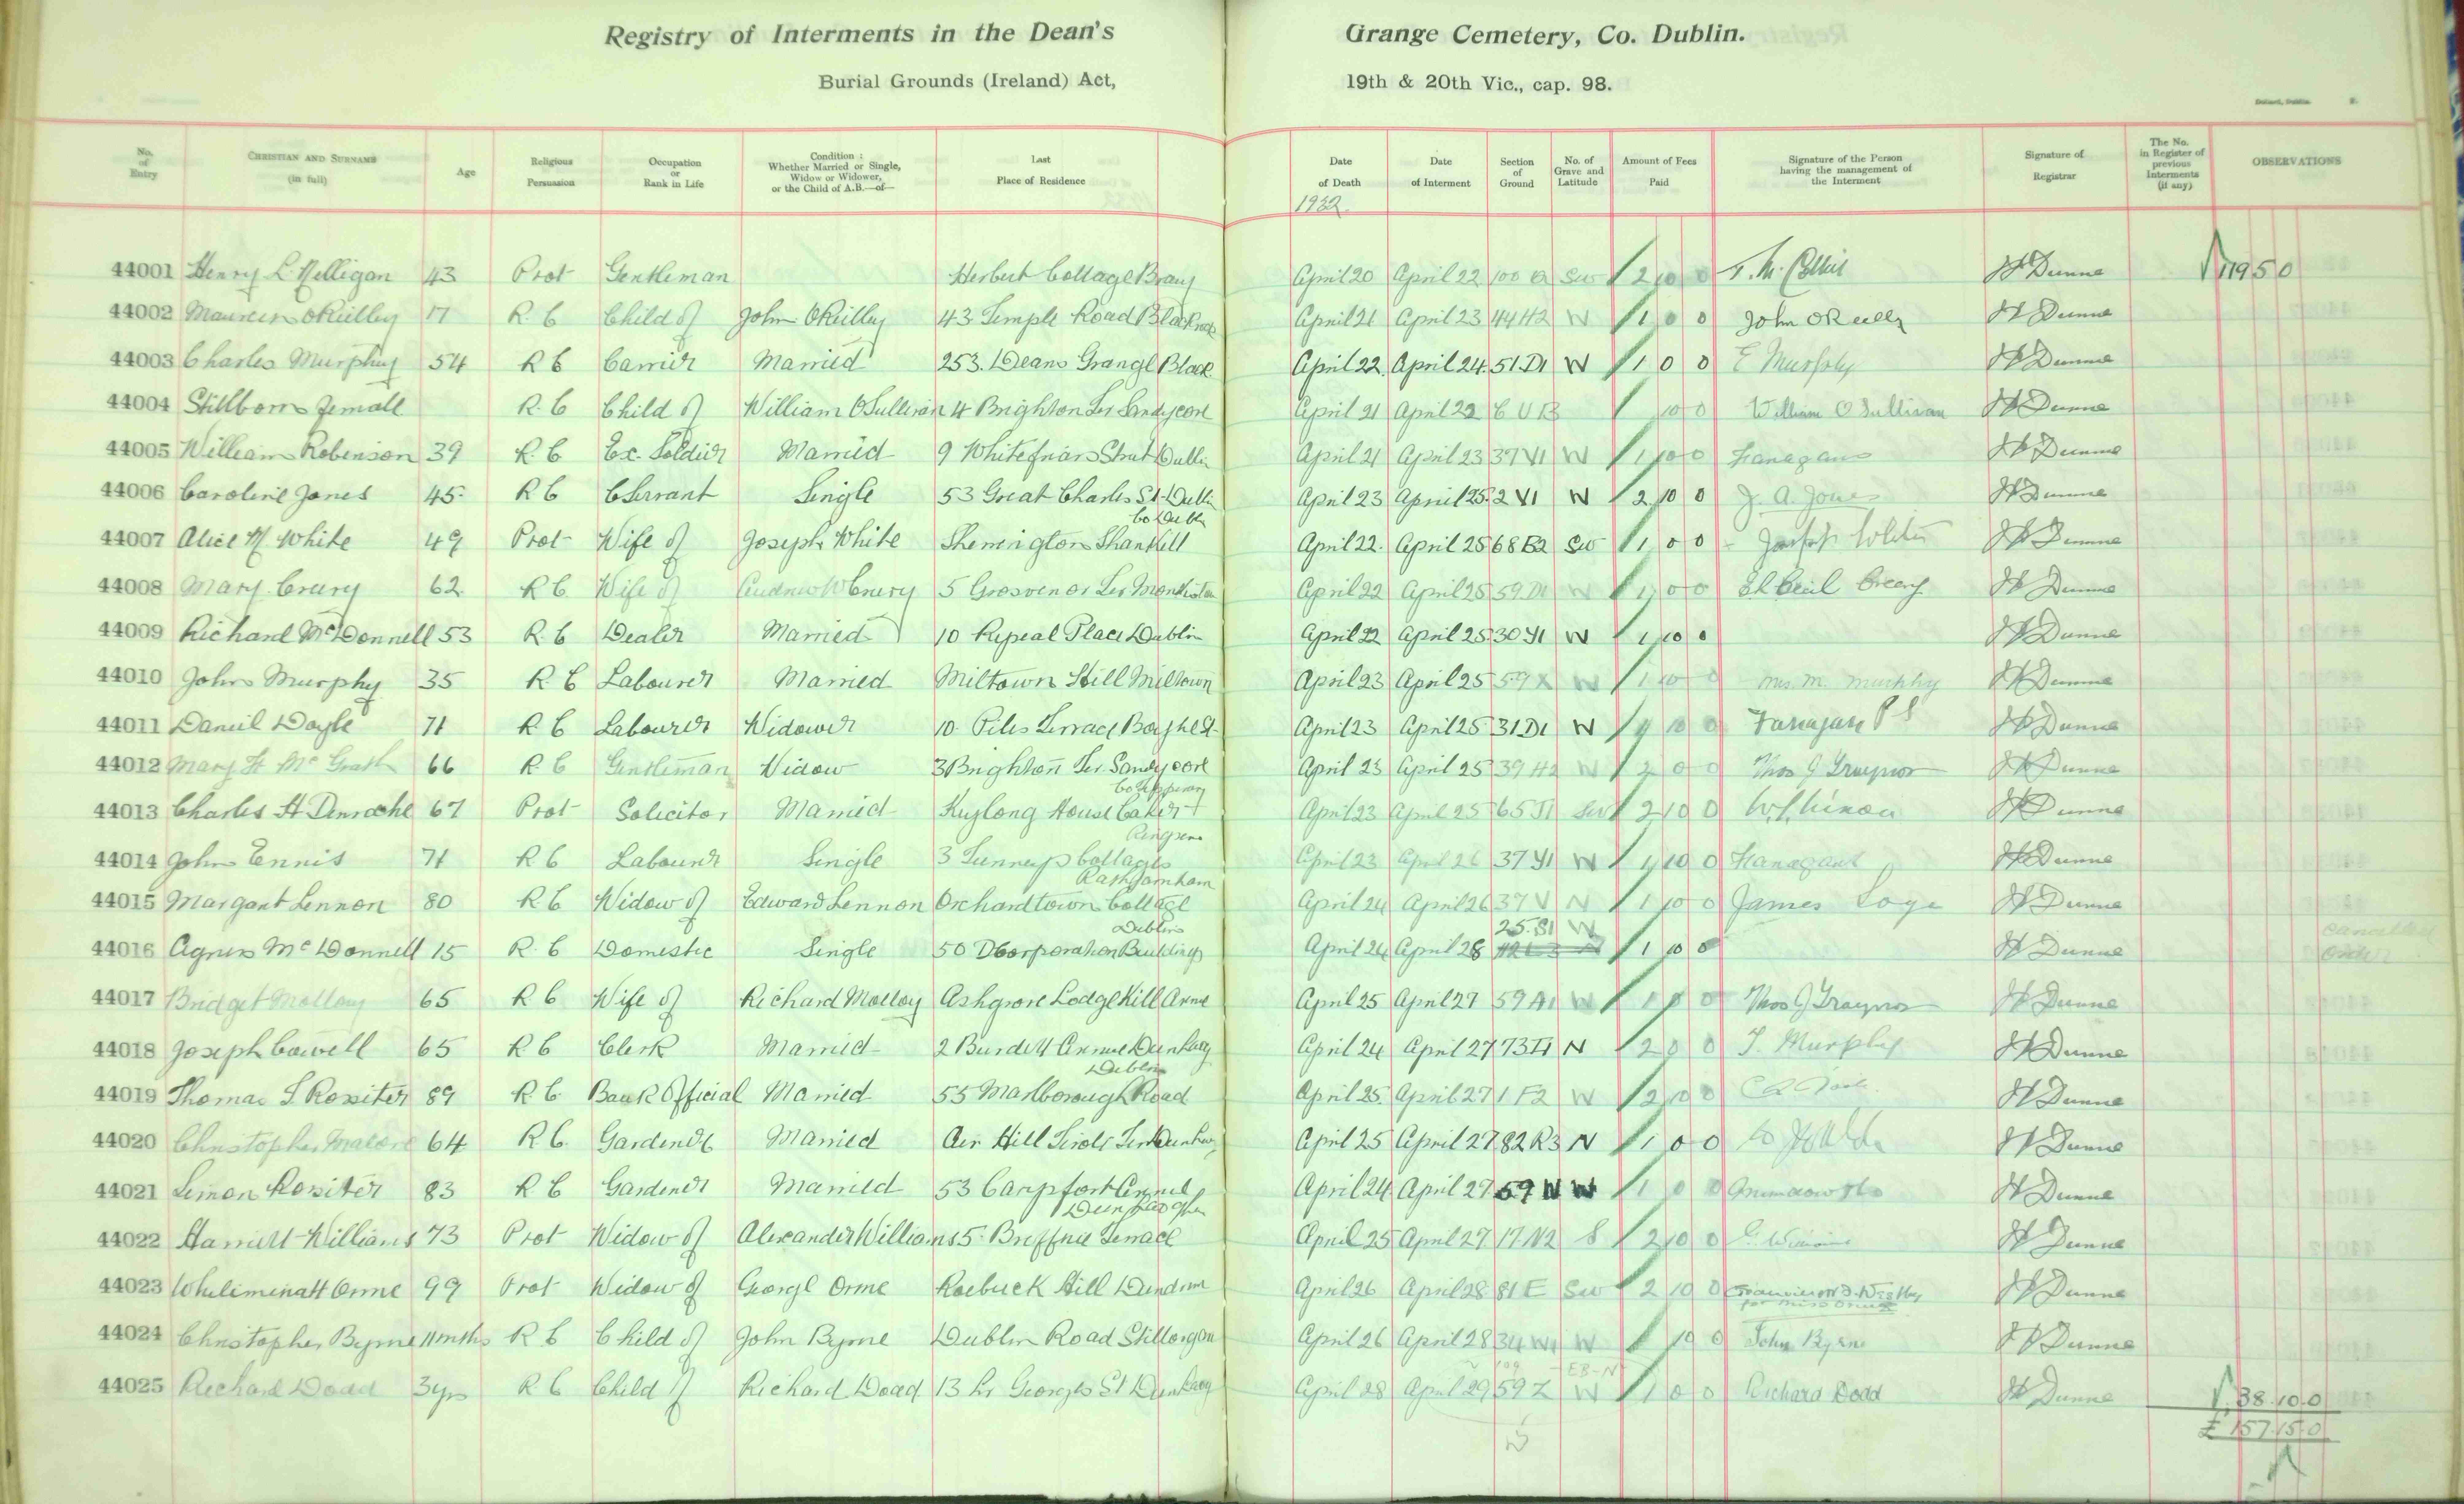 Registry of Interments in the Dean's Grange Cemetery, Co. Dublin.
Burial Grounds (Ireland) Act, 19th & 20th Vic., cap. 98.
No. of Entry CHRISTIAN AND SURNAME (in full) Age Religious Persuasion Occupation or Rank in Life Condition: Whether Married or Single, Widow or Widower, or the Child of A.B.—of— Last Place of Residence Date of Death 1932. Date of Interment Section of Ground No. of Grave and Latitude Amount of Fees Paid Signature of the Person having the management of the Interment Signature of Registrar The No. in Register of previous Interments (if any) OBSERVATIONS
44001 Henry L. Nelligan 43 Prot Gentleman Herbert Cottage Bray April 20 April 22 100 SW 2 10 0 Dunne 119 5 0
44002 Maureen O'Reilley 17 R. C Child of John O'Reilley 43 Temple Road Blackrock April 21 April 23 44 H2 W 1 0 0 John O'Reilly Dunne
44003 Charles Murphy 54 R C Carrier Married 253. Deans Grange Black April 22. April 24. 51. D1 W 1 0 0 E Murphy Dunne
44004 Stillborn Female R. C Child of William O'Sullivan 4 Brighton Ter Sandycove April 21 April 22 C U B 10 0 William O'Sullivan Dunne
44005 William Robinson 39 R. C Ex. Soldier Married 9 Whitefriars Street Dublin April 21 April 23 37 V1 W 1 10 0 Flanagans Dunne
44006 Caroline Jones 45. R C C Servant Single 53 Great Charles St. Dublin April 23 April 25. 2 V1 W 2 10 0 J. A. Jones Dunne
44007 Alice M White 49 Prot Wife of Joseph White Sherrington Shankill Co Dublin April 22. April 25 68 B2 SW 1 0 0 Joseph White Dunne
44008 Mary Creery 62. R C Wife of Andrew W Creery 5 Grosvenor Ter Monkstown April 22 April 25 59 W 1 0 0 Cecil Creery Dunne
44009 Richard McDonnell 53 R. C Dealer Married 10 Repeal Place Dublin April 22 April 25. 30 Y1 W 1 10 0 Dunne
44010 John Murphy 35 R. C Labourer Married Miltown Hill Miltown April 23 April 25 59 X W 1 10 0 Mrs. M. Murphy Dunne
44011 Daniel Doyle 71 R. C Labourer Widower 10 Piles Terrace April 23 April 25 31 D1 W 4 10 0 Dunne
44012 Mary F McGrath 66 R. C Gentleman Widow 3 Brighton Ter. Sandycove April 23 April 25 39 H2 W 2 0 0 Thos J Traynor Dunne
44013 Charles H Denroche 67 Prot Solicitor Married House Caher Co Tipperary April 23 April 25 65 SW 2 10 0 Dunne
44014 John Ennis 71 R C Labourer Single 3 Cottages Ringsend April 23 April 26 37 Y1 W 1 10 0 Flanagans Dunne
44015 Margaret Lennon 80 R C Widow of Edward Lennon Orchardtown Cottage Rathfarnham April 24 April 26 37 V N 1 10 0 James Dunne
44016 Agnes McDonnell 15 R. C Domestic Single 50 D Corporation Buildings Dublin April 24 April 28 25. S1 W 1 10 0 Dunne cancelled order
44017 Bridget Molloy 65 R C Wife of Richard Molloy Ashgrove Lodge Kill Avnue April 25 April 27 59 A1 W 1 0 0 Thos J Traynor Dunne
44018 Joseph Cowell 65 R C Clerk Married 2 Burdett Avnue Dunlaoy April 24 April 27 73 N 2 0 0 J. Murphy Dunne
44019 Thomas S Rossiter 89 R. C. Bank Official Married 55 Marlborough Road Dublin April 25. April 27 1 F2 W 2 10 0 Dunne
44020 Christopher Malone 64 R C. Gardener Married April 25 April 27 82 R3 N 1 0 0 Dunne
44021 Simon Rossiter 83 R. C Gardener Married 53 Carysfort Avenue April 24 April 27 59 N W 1 0 0 Dunne
44022 Harriett Williams 73 Prot Widow of Alexander Williams 5. Breffni Terrace Dun Laoghaire April 25 April 27 17 N2 S 2 10 0 Dunne
44023 Wheliminah Orme 99 Prot Widow of George Orme Roebuck Hill Dundrum April 26 April 28 81 E SW 2 10 0 for Miss Orme Dunne
44024 Christopher Byrne 11 mths R C Child of John Byrne Dublin Road Stillorgan April 26 April 28 34 W1 W 10 0 John Byrne Dunne
44025 Richard Dodd 3 yrs R. C Child of Richard Dodd 13 Lr Georges St Dunlaoy April 28 April 29 59 Z W 1 0 0 Richard Dodd Dunne 38. 10. 0
£ 157. 15. 0